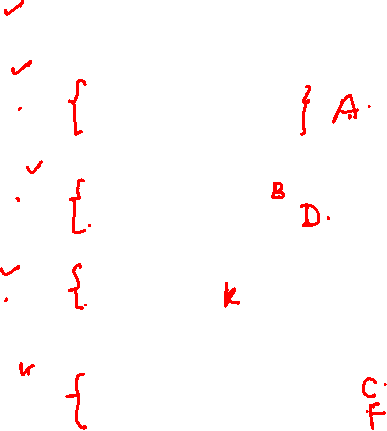 ✓
✓
{ } A.
✓
B
{ D.
✓
{ K
{ C.
F